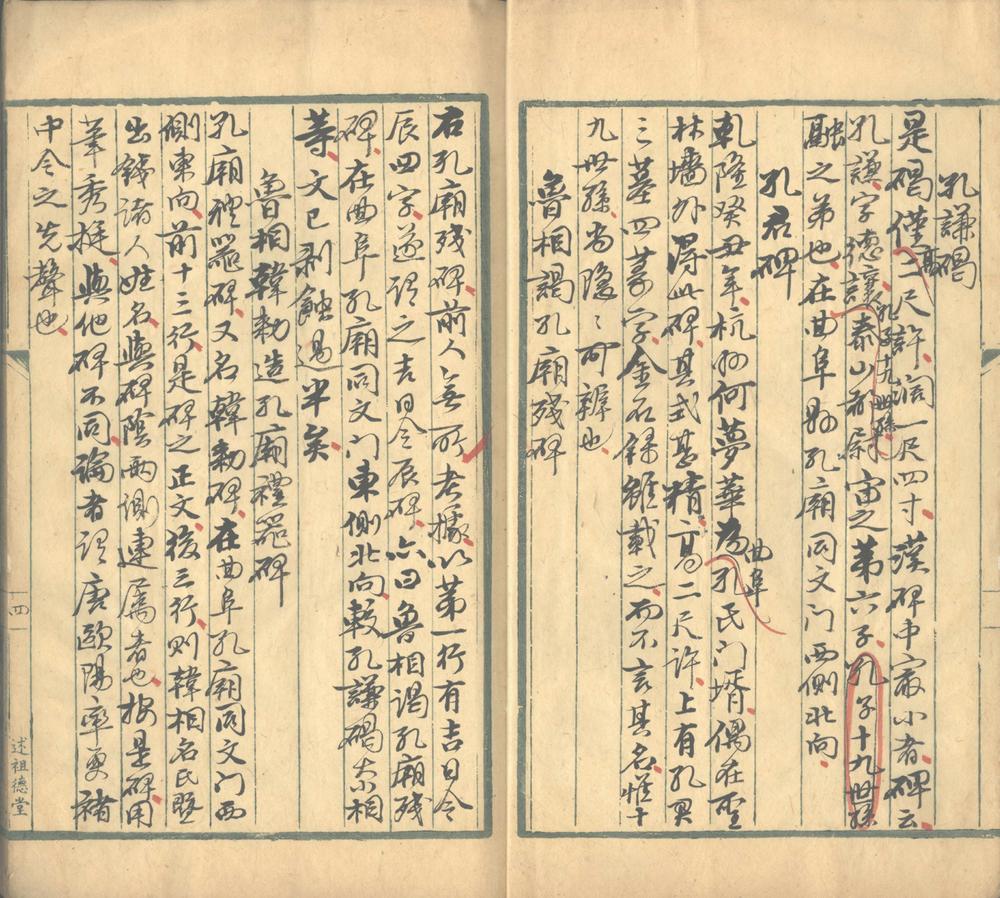 孔謙碣
是碣僅高二尺許濶一尺四寸漢碑中最小者碑云
孔謙字德讓孔子十九世孫泰山都尉宙之第六子孔子十九世孫
融之弟也在曲阜縣孔廟同文门西側北向
孔君碑
乹隆癸丑年杭州何夢華為曲阜孔氏门壻偶在聖
林墻外得此碑其式甚精高二尺許上有孔君
之墓四篆字金石錄雖載之而不言其名惟十
九世孫尚隐〻可辨也
魯相謁孔廟殘碑
右孔廟殘碑前人無所考據以第一行有吉日令
辰四字遂謂之吉日令辰碑亦曰魯相謁孔廟殘
碑在曲阜孔廟同文门東側北向較孔謙碣亦相
等文已剥蝕過半矣
魯相韓勑造孔廟禮器碑
孔廟禮器碑又名韓勑碑在曲阜孔廟同文门西
側東向前十三行是碑之正文後三行則韓相名氏暨
出錢諸人姓名與碑陰兩側連属者也按是碑用
筆秀挺與他碑不同論者謂唐歐陽率更褚
中令之先聲也
四
述祖德堂